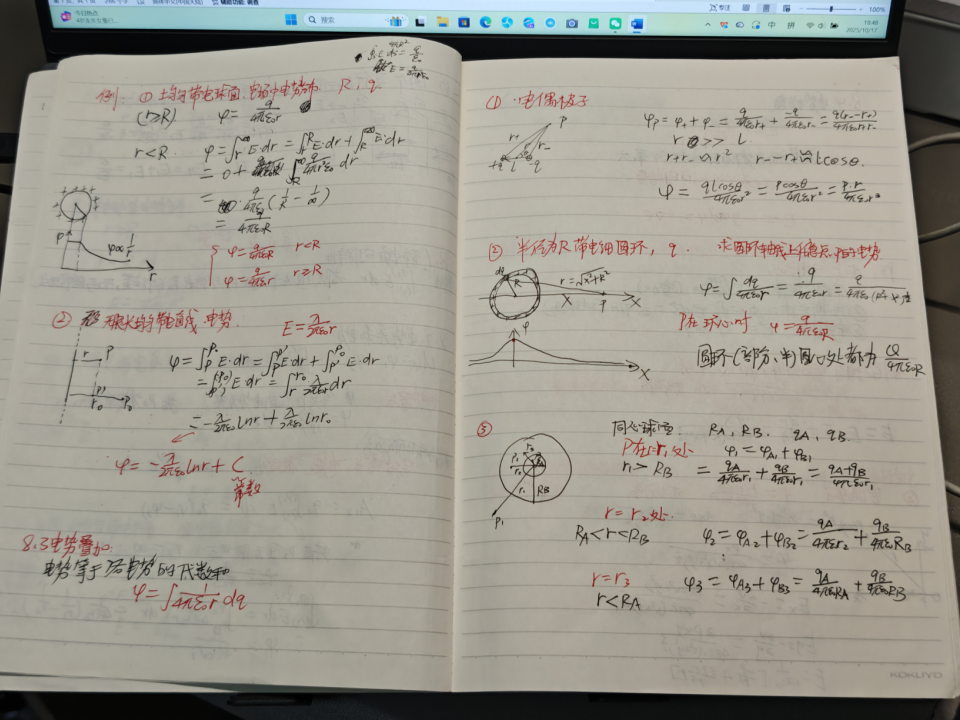 搜索
100%
19:40
2025/10/17
中
拼
例: ① 均匀带电球面, 电场中电势分布 R, q
(r≥R) φ = q/4πε₀r
r<R. φ = ∫ᵣ^∞ E·dr = ∫ᵣ^R E·dr + ∫_R^∞ E·dr
= 0 + ∫_R^∞ q/4πr²ε₀ dr
= q/4πε₀ (1/R − 1/∞)
= q/4πε₀R
φ∝1/r
r
φ = q/4πε₀R r<R
φ = q/4πε₀r r≥R
② 无限长均匀带电直线, 电势. E = λ/2πε₀r
r P
P' P₀
r₀
φ = ∫_P^P₀ E·dr = ∫_P^P' E·dr + ∫_P'^P₀ E·dr
= E·dr = ∫ᵣ^r₀ λ/2πε₀r dr
= −λ/2πε₀ lnr + λ/2πε₀ lnr₀
φ = −λ/2πε₀ lnr + C
常数
8.3 电势叠加
电势等于各电势的代数和
φ = ∫ 1/4πε₀r dq
(1) 电偶极子
P
r₊
r₋
+q l -q
φP = φ₊ + φ₋ = q/4πε₀r₊ + −q/4πε₀r₋ = q(r₋−r₊)/4πε₀r₊r₋
r >> l
r₊r₋ ∽ r² r₋−r₊ ≈ lcosθ.
φ = qlcosθ/4πε₀r² = pcosθ/4πε₀r² = p·r/4πε₀r³
② 半径为R 带电细圆环, q. 求圆环轴线上任意点P的电势
dq
R
r = √x²+R²
X P X
φ = ∫ dq/4πε₀r = q/4πε₀r = q/4πε₀(R²+x²)½
P在环心时 φ = q/4πε₀R
φ
X
圆环(部分、半)圆心处都为 Q/4πε₀R
③ 同心球面 RA, RB. qA, qB.
P在r=r₁处 φ₁ = φA₁ + φB₁
r₁ > RB = qA/4πε₀r₁ + qB/4πε₀r₁ = qA+qB/4πε₀r₁
RB
P₁
r = r₂处.
RA<r<RB φ₂ = φA₂ + φB₂ = qA/4πεr₂ + qB/4πε₀RB
r = r₃
r<RA φ₃ = φA₃ + φB₃ = qA/4πε₀RA + qB/4πε₀RB
KOKUYO